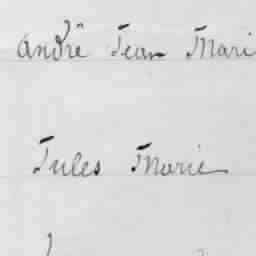 André Jean Mari
Jules Marie